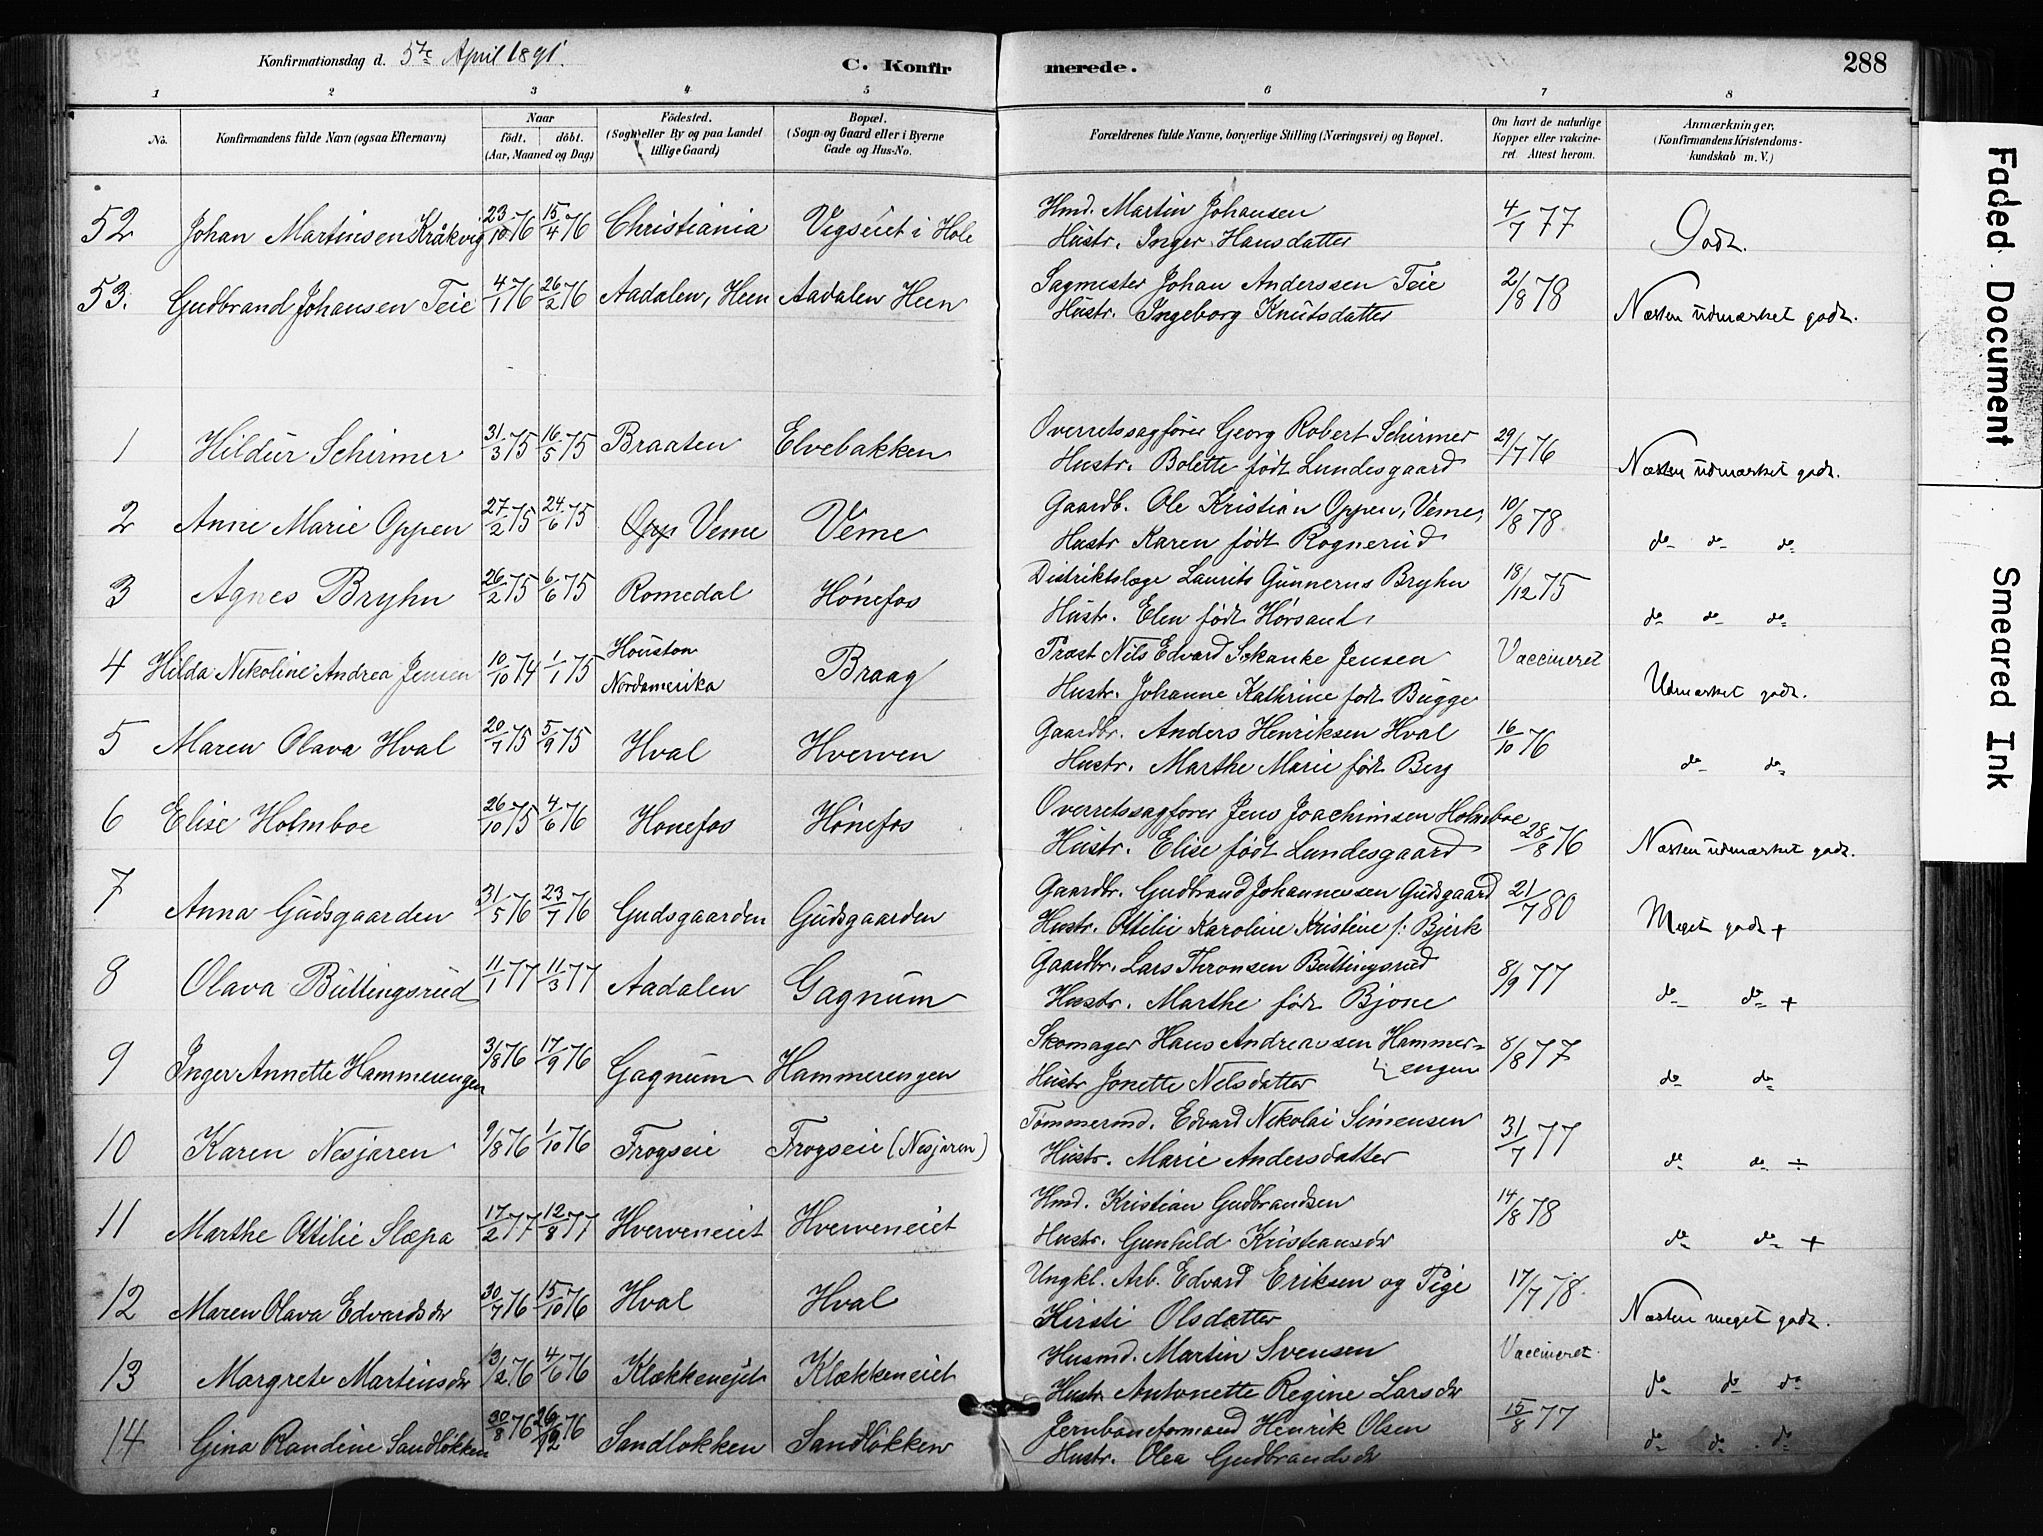 Konfirmationsdag d. 5te April 1891. C. Konfirmerede. 288
1 2 3 4 5 6 7 8
No. Konfirmandens fulde Navn (ogsaa Efternavn) Naar født. døbt. (Aar, Maaned og Dag) Fødested. (Sogn eller By og paa Landet tillige Gaard) Bopæl. (Sogn og Gaard eller i Byerne Gade og Hus-No. Forældrenes fulde Navne, borgerlige Stilling (Næringsvei) og Bopæl. Om havt de naturlige Kopper eller vakcineret Attest herom. Anmærkninger. (Konfirmandens Kristendomskundskab m. V.)
52 Johan Martinsen Kråkvig 23/10 76 15/4 76 Christiania Vigseiet i Hole Hmd. Martin Johansen 4/7 77 Godt.
Hustr. Inger Hansdatter
53. Gudbrand Johansen Teie 4/1 76 26/2 76 Aadalen, Heen Aadalen Heen Sagmester Johan Anderssen Teie 2/8 78 Næsten udmærket godt.
Hustr. Ingeborg Knutsdatter
1 Hildur Schirmer 31/3 75 16/5 75 Braaten Elvebakken Overretssagfører Georg Robert Schirmer 29/7 76 Næsten udmærket godt.
Hustr. Bolette født Lundesgaard
2 Anne Marie Oppen 27/2 75 24/6 75 Veme Veme Gaardb. Ole Kristian Oppen, Veme, 10/8 78 do do do
Hustr Karen født Rognerud
3 Agnes Bryhn 26/2 75 6/6 75 Romedal Hønefos Distriktslæge Laurits Gunnerus Bryhn 18/12 75 do do do
Hustr. Elen født Hørsand
4 Hilda Nikoline Andrea Jensen 10/10 74 1/1 75 Houston Nordamerika Braag Prost Nils Edvard Schanke Jensen Vaccineret Udmærket godt.
Hustr. Johanne Kathrine født Bugge
5 Maren Olava Hval 20/7 75 5/9 75 Hval Hverven Gaardbr. Anders Henriksen Hval 16/10 76 do do
Hustr. Marthe Marie født Berg
6 Elise Holmboe 26/10 75 4/6 76 Hønefos Hønefos Overretssagfører Jens Joachimsen Holmboe 28/8 76 Næsten udmærket godt.
Hustr. Elise født Lundesgaard
7 Anna Gudsgaarden 31/5 76 23/7 76 Gudsgaarden Gudsgaarden Gaardbr. Gudbrand Johannessen Gudsgaard 21/7 80 Meget godt +
Hustr. Ottilie Karoline Kristine f: Bjerk
8 Olava Buttingsrud 11/1 77 11/3 77 Aadalen Gagnum Gaardbr. Lars Thronsen Buttingsrud 8/9 77 do do +
Hustr. Marthe født Bjone
9 Inger Annette Hammerengen 3/8 76 17/9 76 Gagnum Hammerengen Skomager Hans Andreassen Hammer= 8/8 77 do do
Hustr Jonette Nelsdatter engen
10 Karen Nesjaren 9/8 76 1/10 76 Frogseie Frogseie (Nesjaren) Tømmermd. Edvard Nikolai Simensen 31/7 77 do do ÷
Hustr. Marie Andersdatter
11 Marthe Ottilie Slæpa 17/2 77 12/8 77 Hverveneiet Hverveneiet Hmd. Kristian Gudbrandsen 14/8 78 do do +
Hustr. Gunhild Kristiansdr
12 Maren Olava Edvardsdr 30/7 76 15/10 76 Hval Hval Ungkl. Arb. Edvard Eriksen og Pige 17/7 78. Næsten meget godt.
Kirsti Olsdatter
13 Margrete Martinsdr 13/2 76 4/6 76 Klækkeneiet Klækkeneiet Husmd. Martin Svensen Vaccineret do do do
Hustr Antonette Regine Larsdr
14 Gina Randine Sandløkken 30/8 76 Sandløkken Sandløkken Jernbaneformand Henrik Olsen 15/8 77 do do do
Hustr. Olea Gudbrandsdr
Faded Document
Smeared Ink